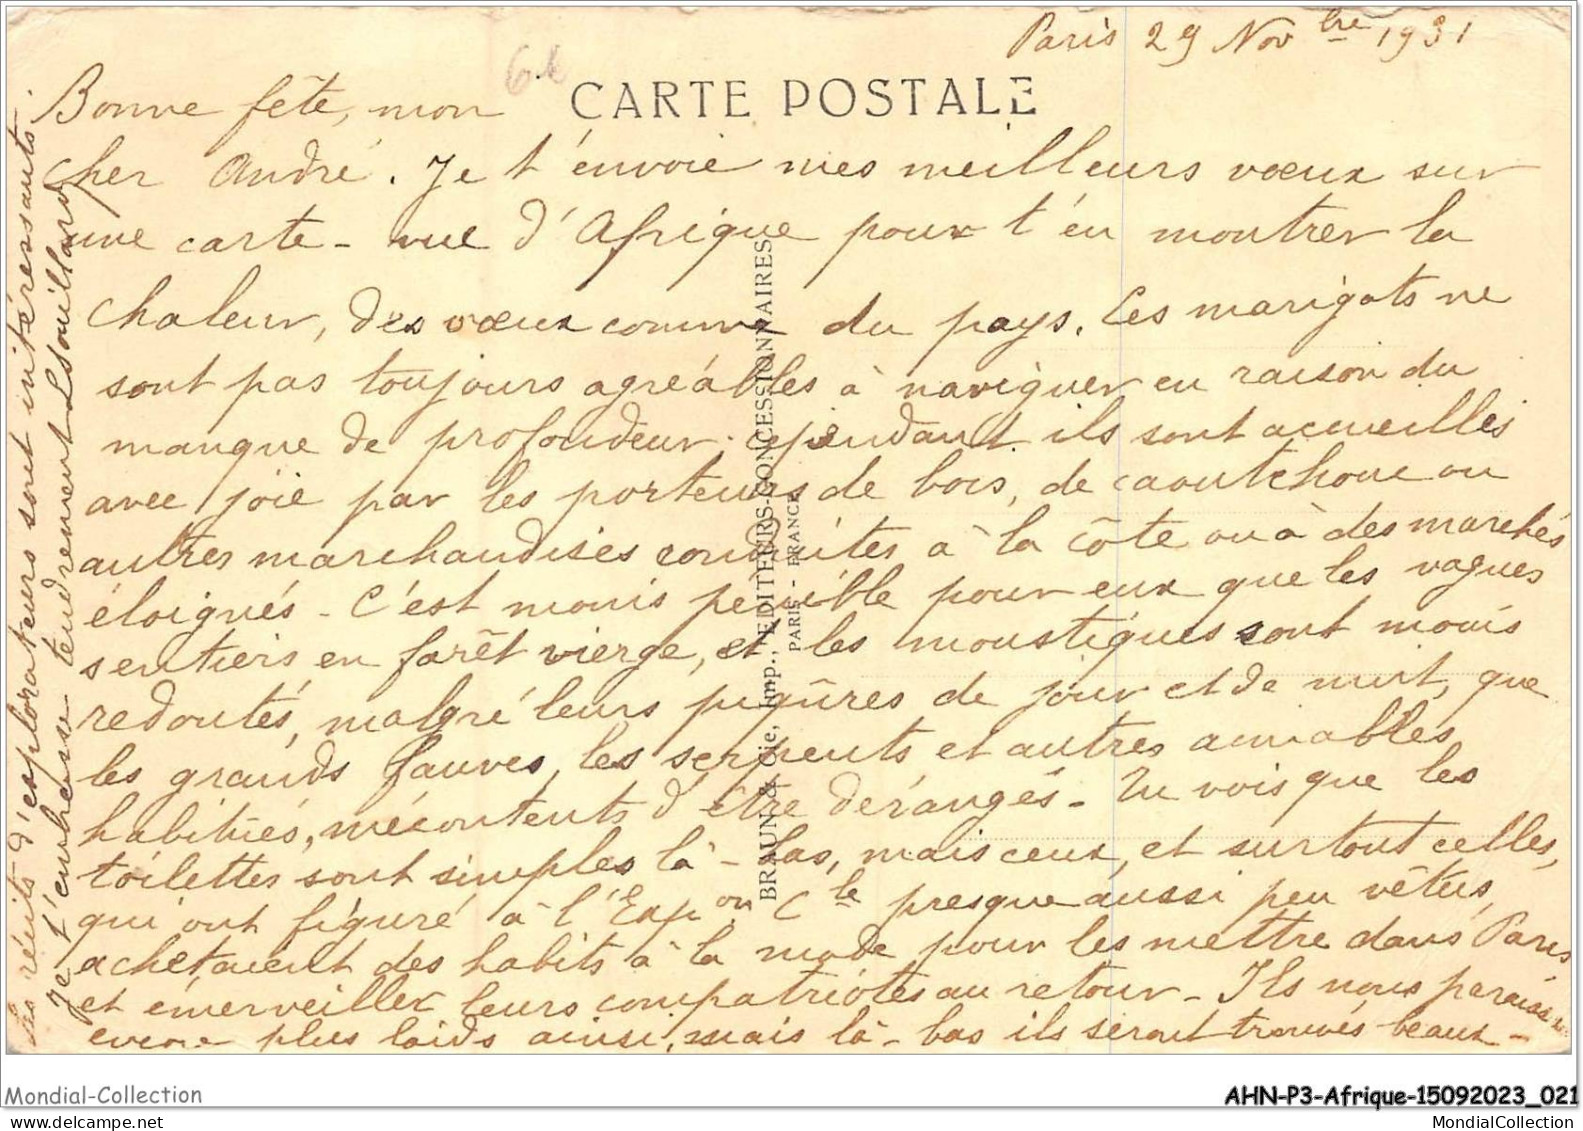 Paris 29 Nov bre 1931
6k
CARTE POSTALE
Bonne fête, mon
cher André. Je t'envoie mes meilleurs vœux sur
une carte-vue d'Afrique pour t'en montrer la
chaleur, des vœux comme du pays. Les marigots ne
sont pas toujours agréables à naviguer en raison du
manque de profondeur. cependant ils sont accueillis
avec joie par les porteurs de bois, de caoutchouc ou
autres marchandises conduites à la côte ou à des marchés
éloignés - C'est moins pénible pour eux que les vagues
sentiers en forêt vierge, et les moustiques sont moins
redoutés, malgré leurs piqûres de jour et de nuit, que
les grands fauves, les serpents et autres aimables
habitués, mécontents d'être dérangés - Tu vois que les
toilettes sont simples là-bas, mais ceux, et surtout celles,
qui ont figuré à l'Exp on C le presque aussi peu vêtus,
achetaient des habits à la mode pour les mettre dans Paris
et émerveiller leurs compatriotes au retour - Ils nous paraissent
encore plus laids ainsi, mais là-bas ils seront trouvés beaux -
Les récits d'explorateurs sont intéressants.
Je t'embrasse tendrement LSouillard
BRAUN & Cie, Imp., EDITEURS-CONCESSIONNAIRES
PARIS - FRANCE
Mondial-Collection
AHN-P3-Afrique-15092023_021
MondialCollection.com